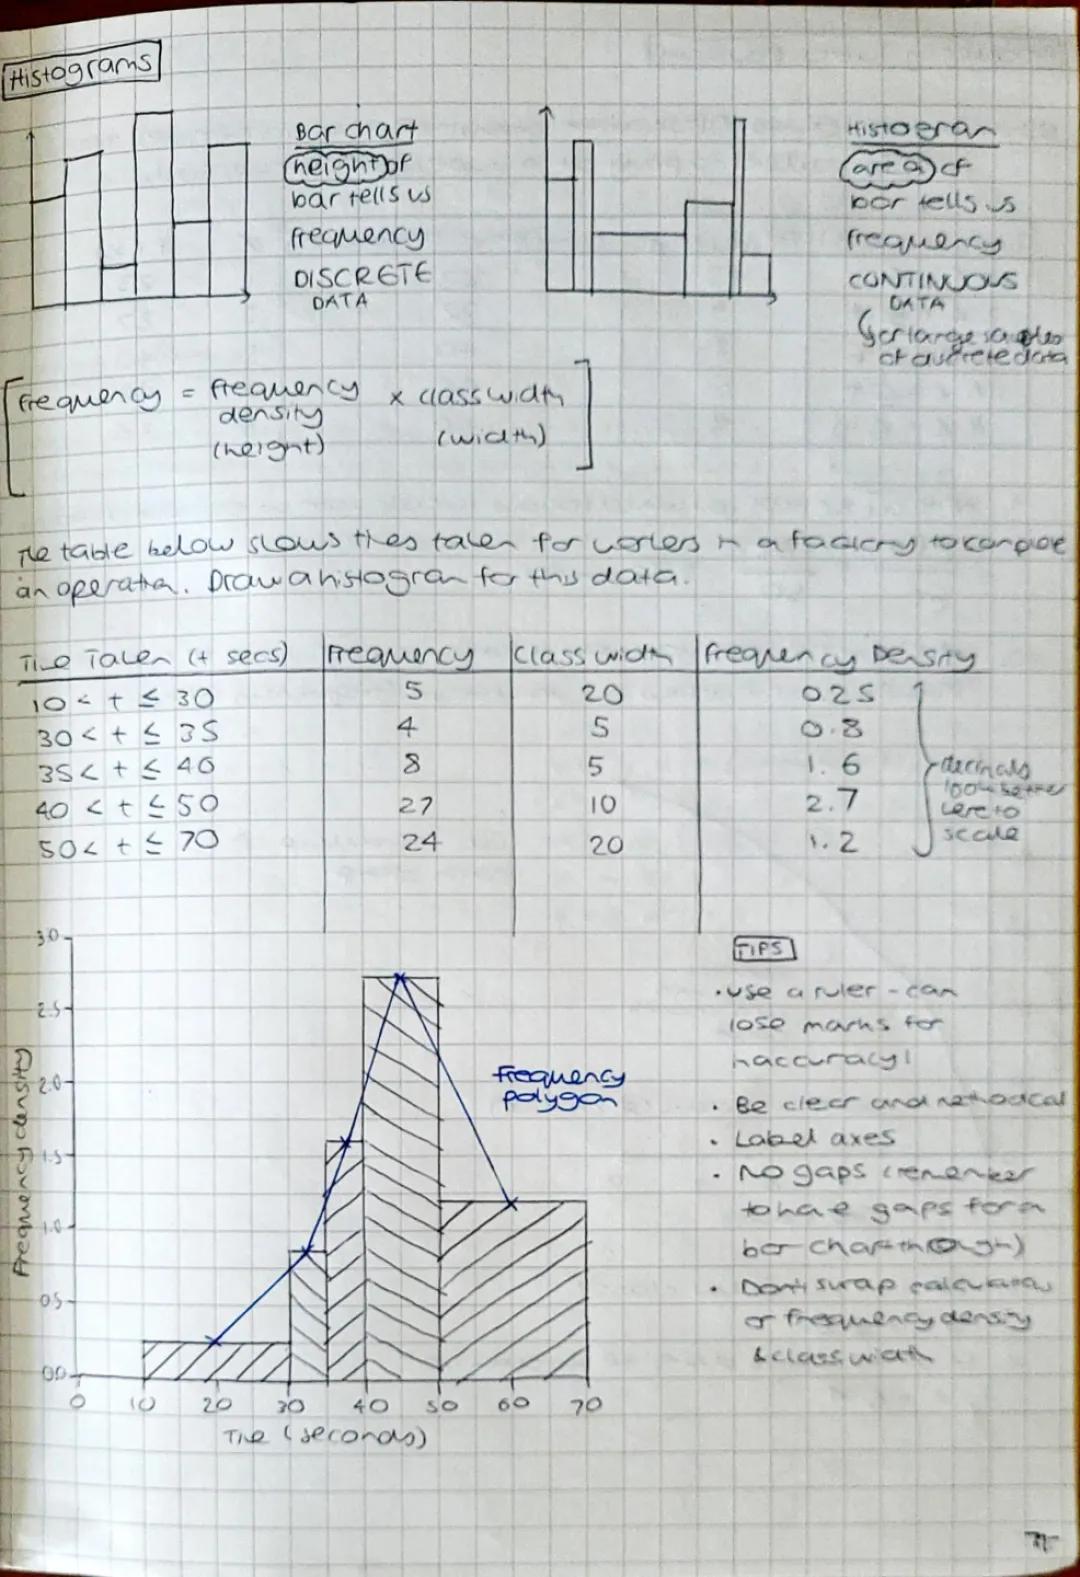 Histograms
Bar chart
height of
bar tells us
frequency
DISCRETE
DATA
Histogram
area of
bar tells us
frequency
CONTINUOUS
DATA
or large samples
of discrete data
frequency = frequency density (height) × class width (width)
The table below shows times taken for workers in a factory to complete
an operation. Draw a histogram for this data.
Time Taken (t secs) Frequency Class width Frequency Density
10 < t ≤ 30 5 20 0.25
30 < t ≤ 35 4 5 0.8
35 < t ≤ 40 8 5 1.6
40 < t ≤ 50 27 10 2.7
50 < t ≤ 70 24 20 1.2
decimals
look better
here to
scale
3.0
2.5
2.0
1.5
1.0
0.5
0.0
Frequency density
frequency
polygon
0 10 20 30 40 50 60 70
Time (seconds)
TIPS
• use a ruler - can
lose marks for
inaccuracy!
• Be clear and methodical
• Label axes
• No gaps (remember
to have gaps for a
bar chart though)
• Don't swap calculations
or frequency density
& class width